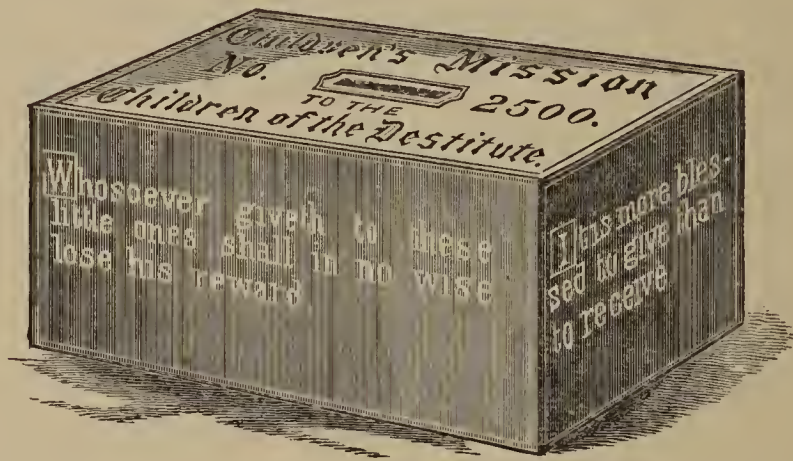 Children's Mission
No. 2500.
TO THE
Children of the Destitute.
Whosoever giveth to these
little ones shall in no wise
lose his reward
It is more bles-
sed to give than
to receive